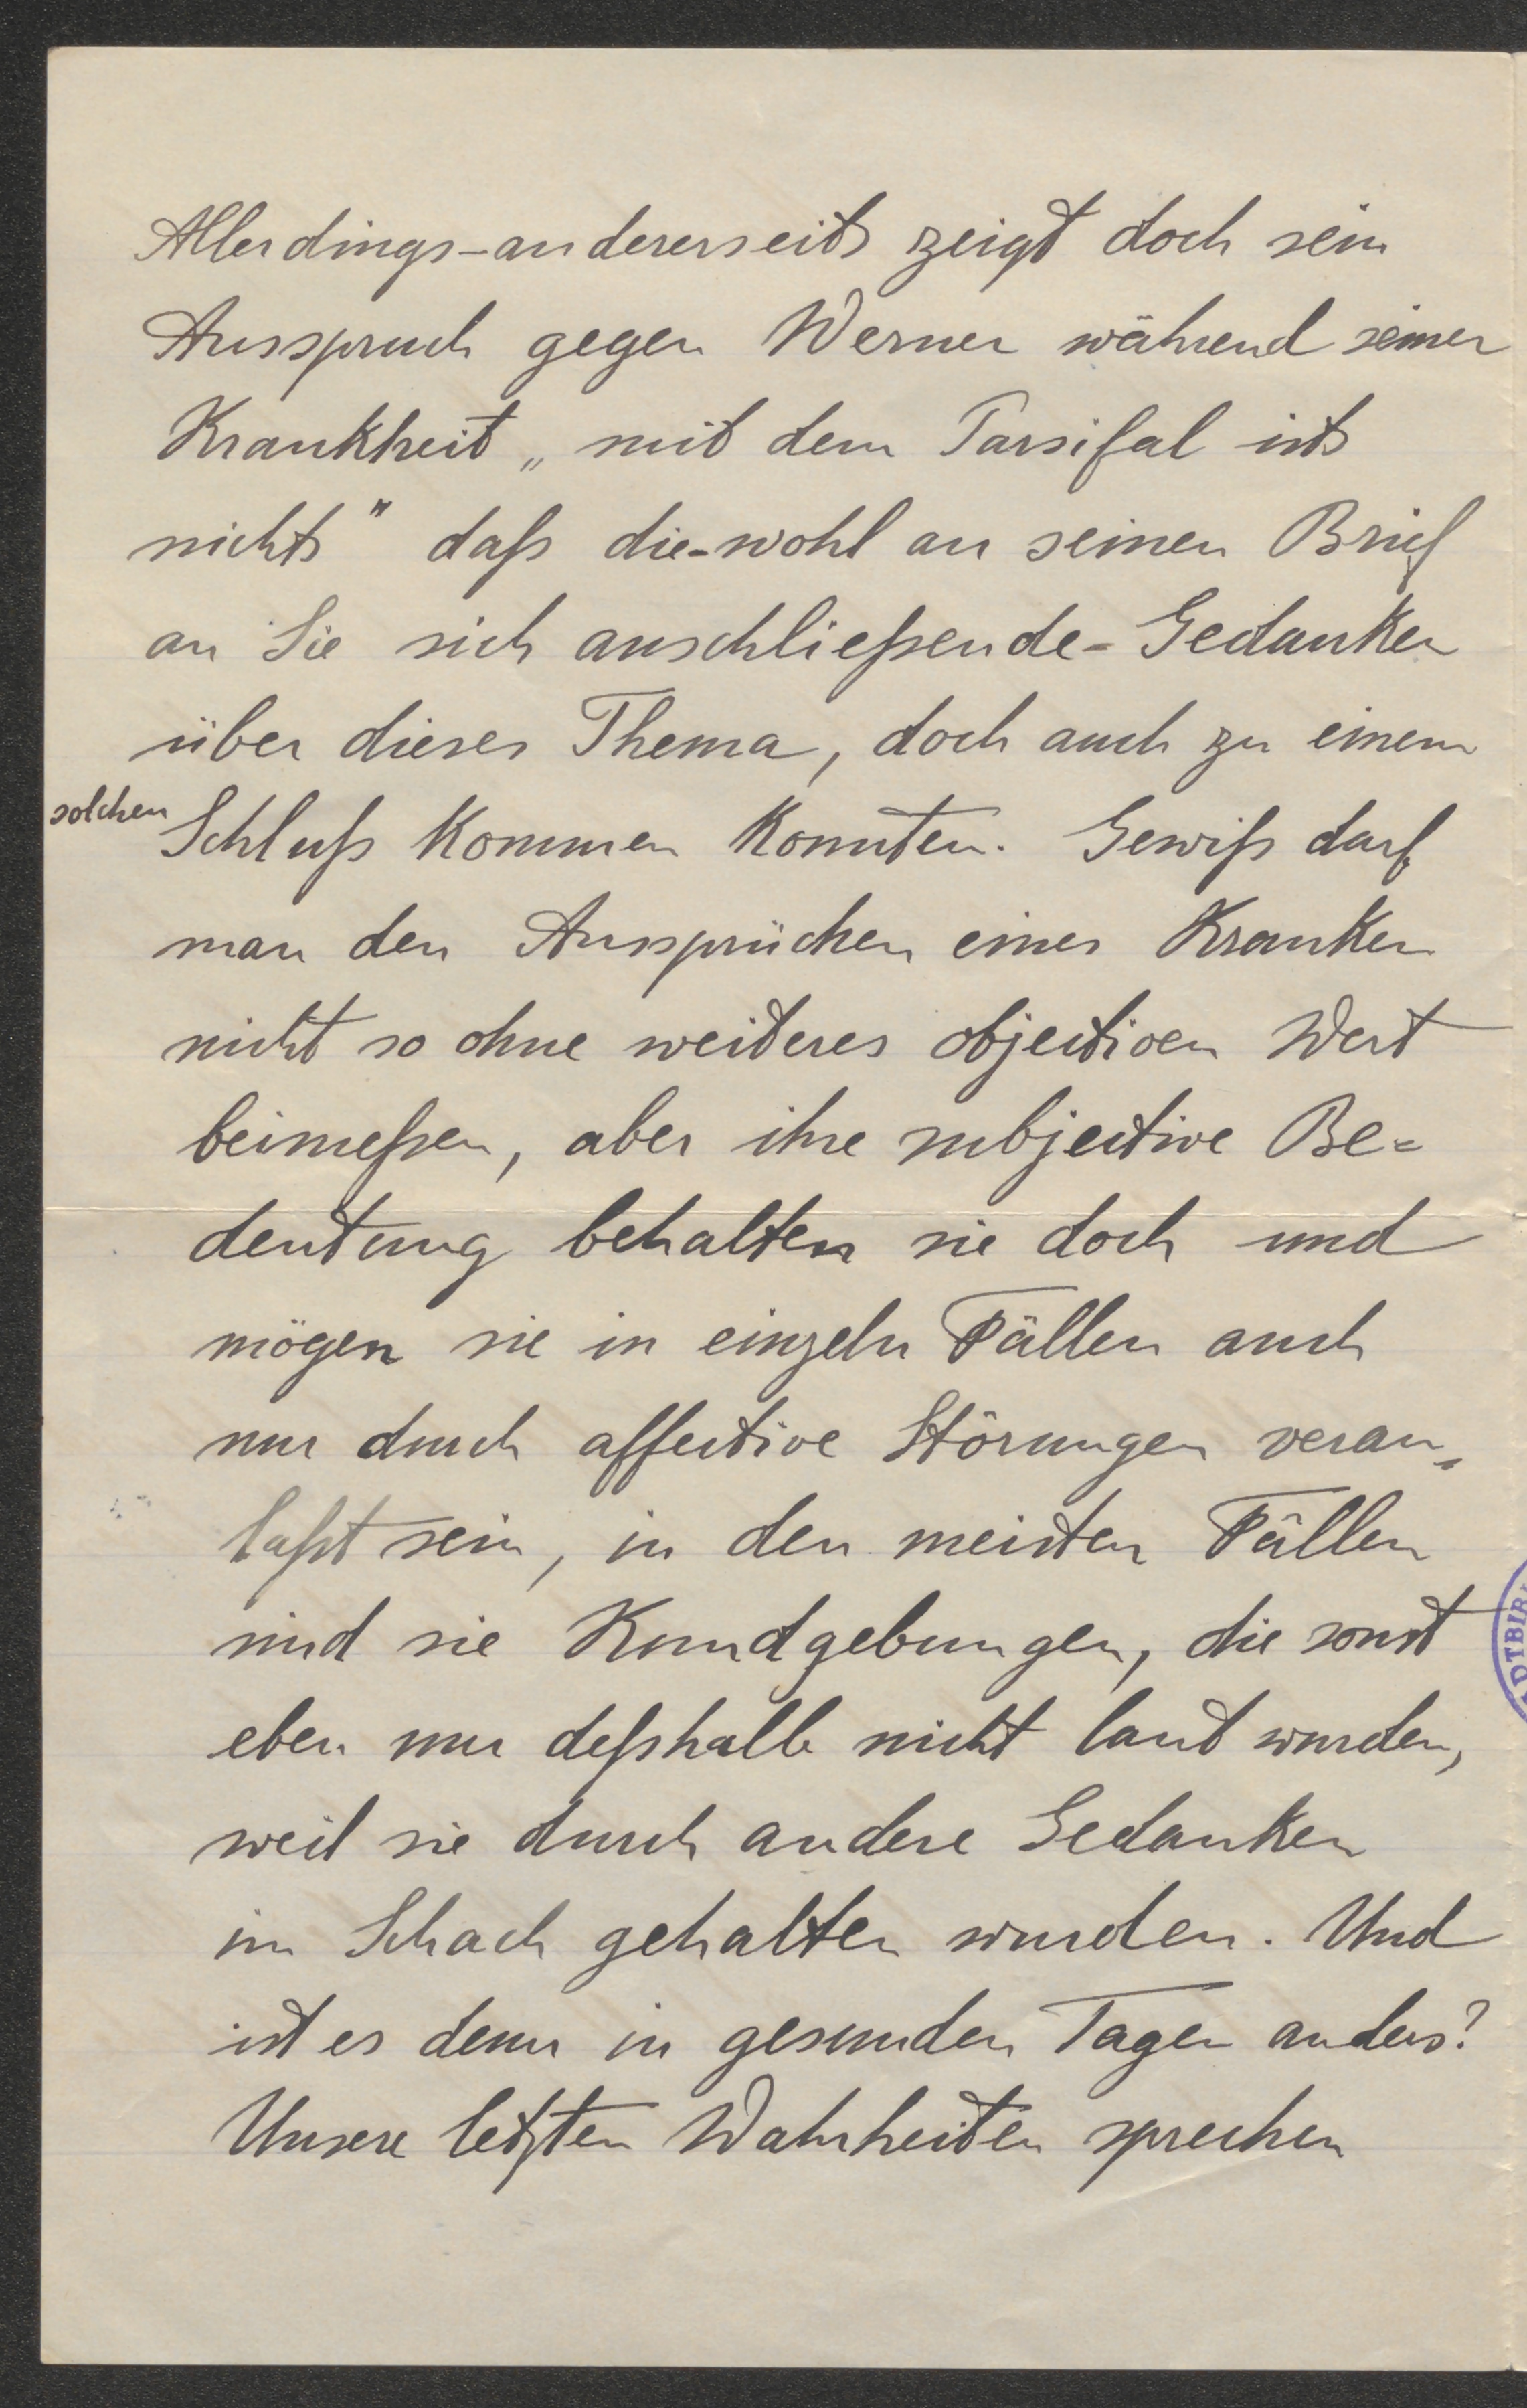 Allerdings-andererseits zeigt doch sein
Ausspruch gegen Werner während seiner
Krankheit „mit dem Parsifal ists
nichts" daß die-wohl an seinen Brief
an Sie sich anschließende-Gedanken
über dieses Thema, doch auch zu einem
solchen Schluß kommen konnten. Gewiß darf
man den Aussprüchen eines Kranken
nicht so ohne weiteres objectiven Wert
beimeßen, aber ihre subjective Be=
deutung behalten sie doch und
mögen sie in einzeln Fällen auch
nur durch affective Störungen veran=
laßt sein, in den meisten Fällen
sind sie Kundgebungen, die sonst
eben nur deßhalb nicht laut wurden,
weil sie durch andere Gedanken
im Schach gehalten wurden. Und
ist es denn in gesunden Tagen anders?
Unsere letzten Wahrheiten sprechen